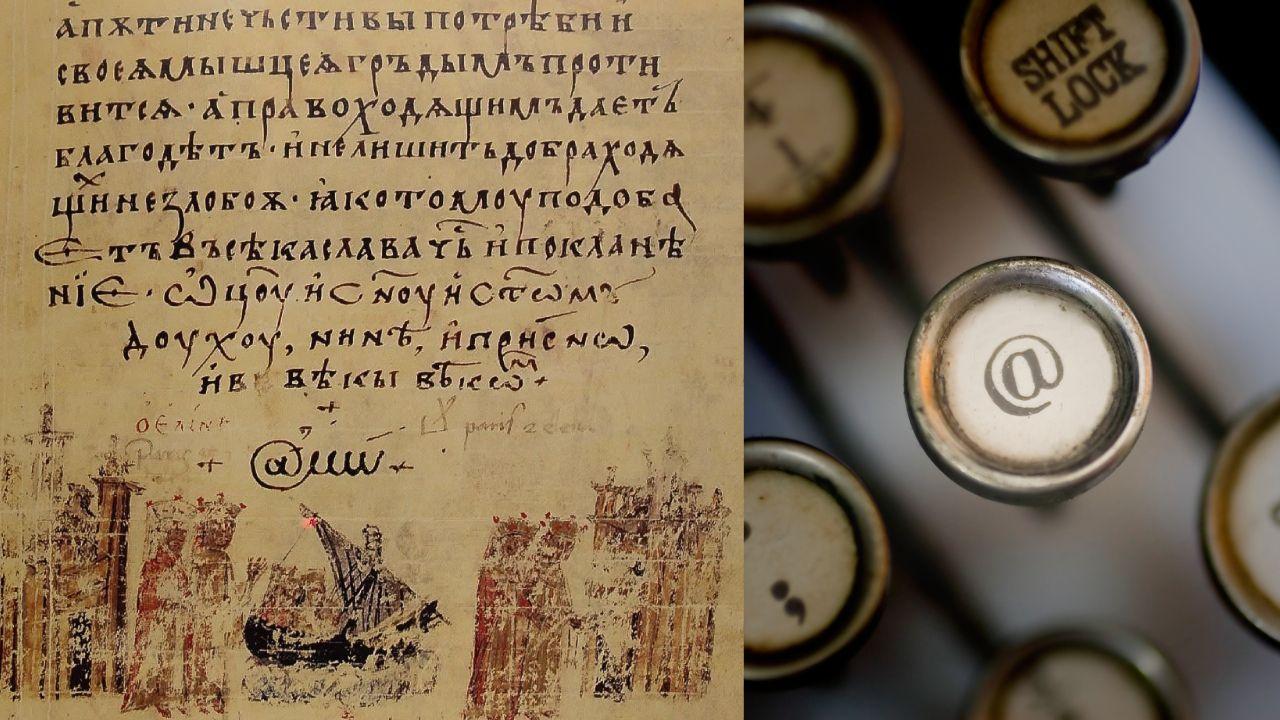 апѫтинечьстивыпотрѣбии
своеѧмышцеѧгръдымъпроти
витсѧ · аправоходѧщимъдаетъ
благодѣтъ · инелишитъдобраходѧ
щинезлобоѫ · ꙗкотомоуподоба
етъвъсѣкаславачъ҇ипокланѣ
нїе · ѡ҃цоуис҃ноуист҃ѡмꙋ
доухоу, нинѣ, иприсѡ,
ив вѣкы вѣкѡⷨ +
+ @мин +
SHIFT
LOCK
@
;